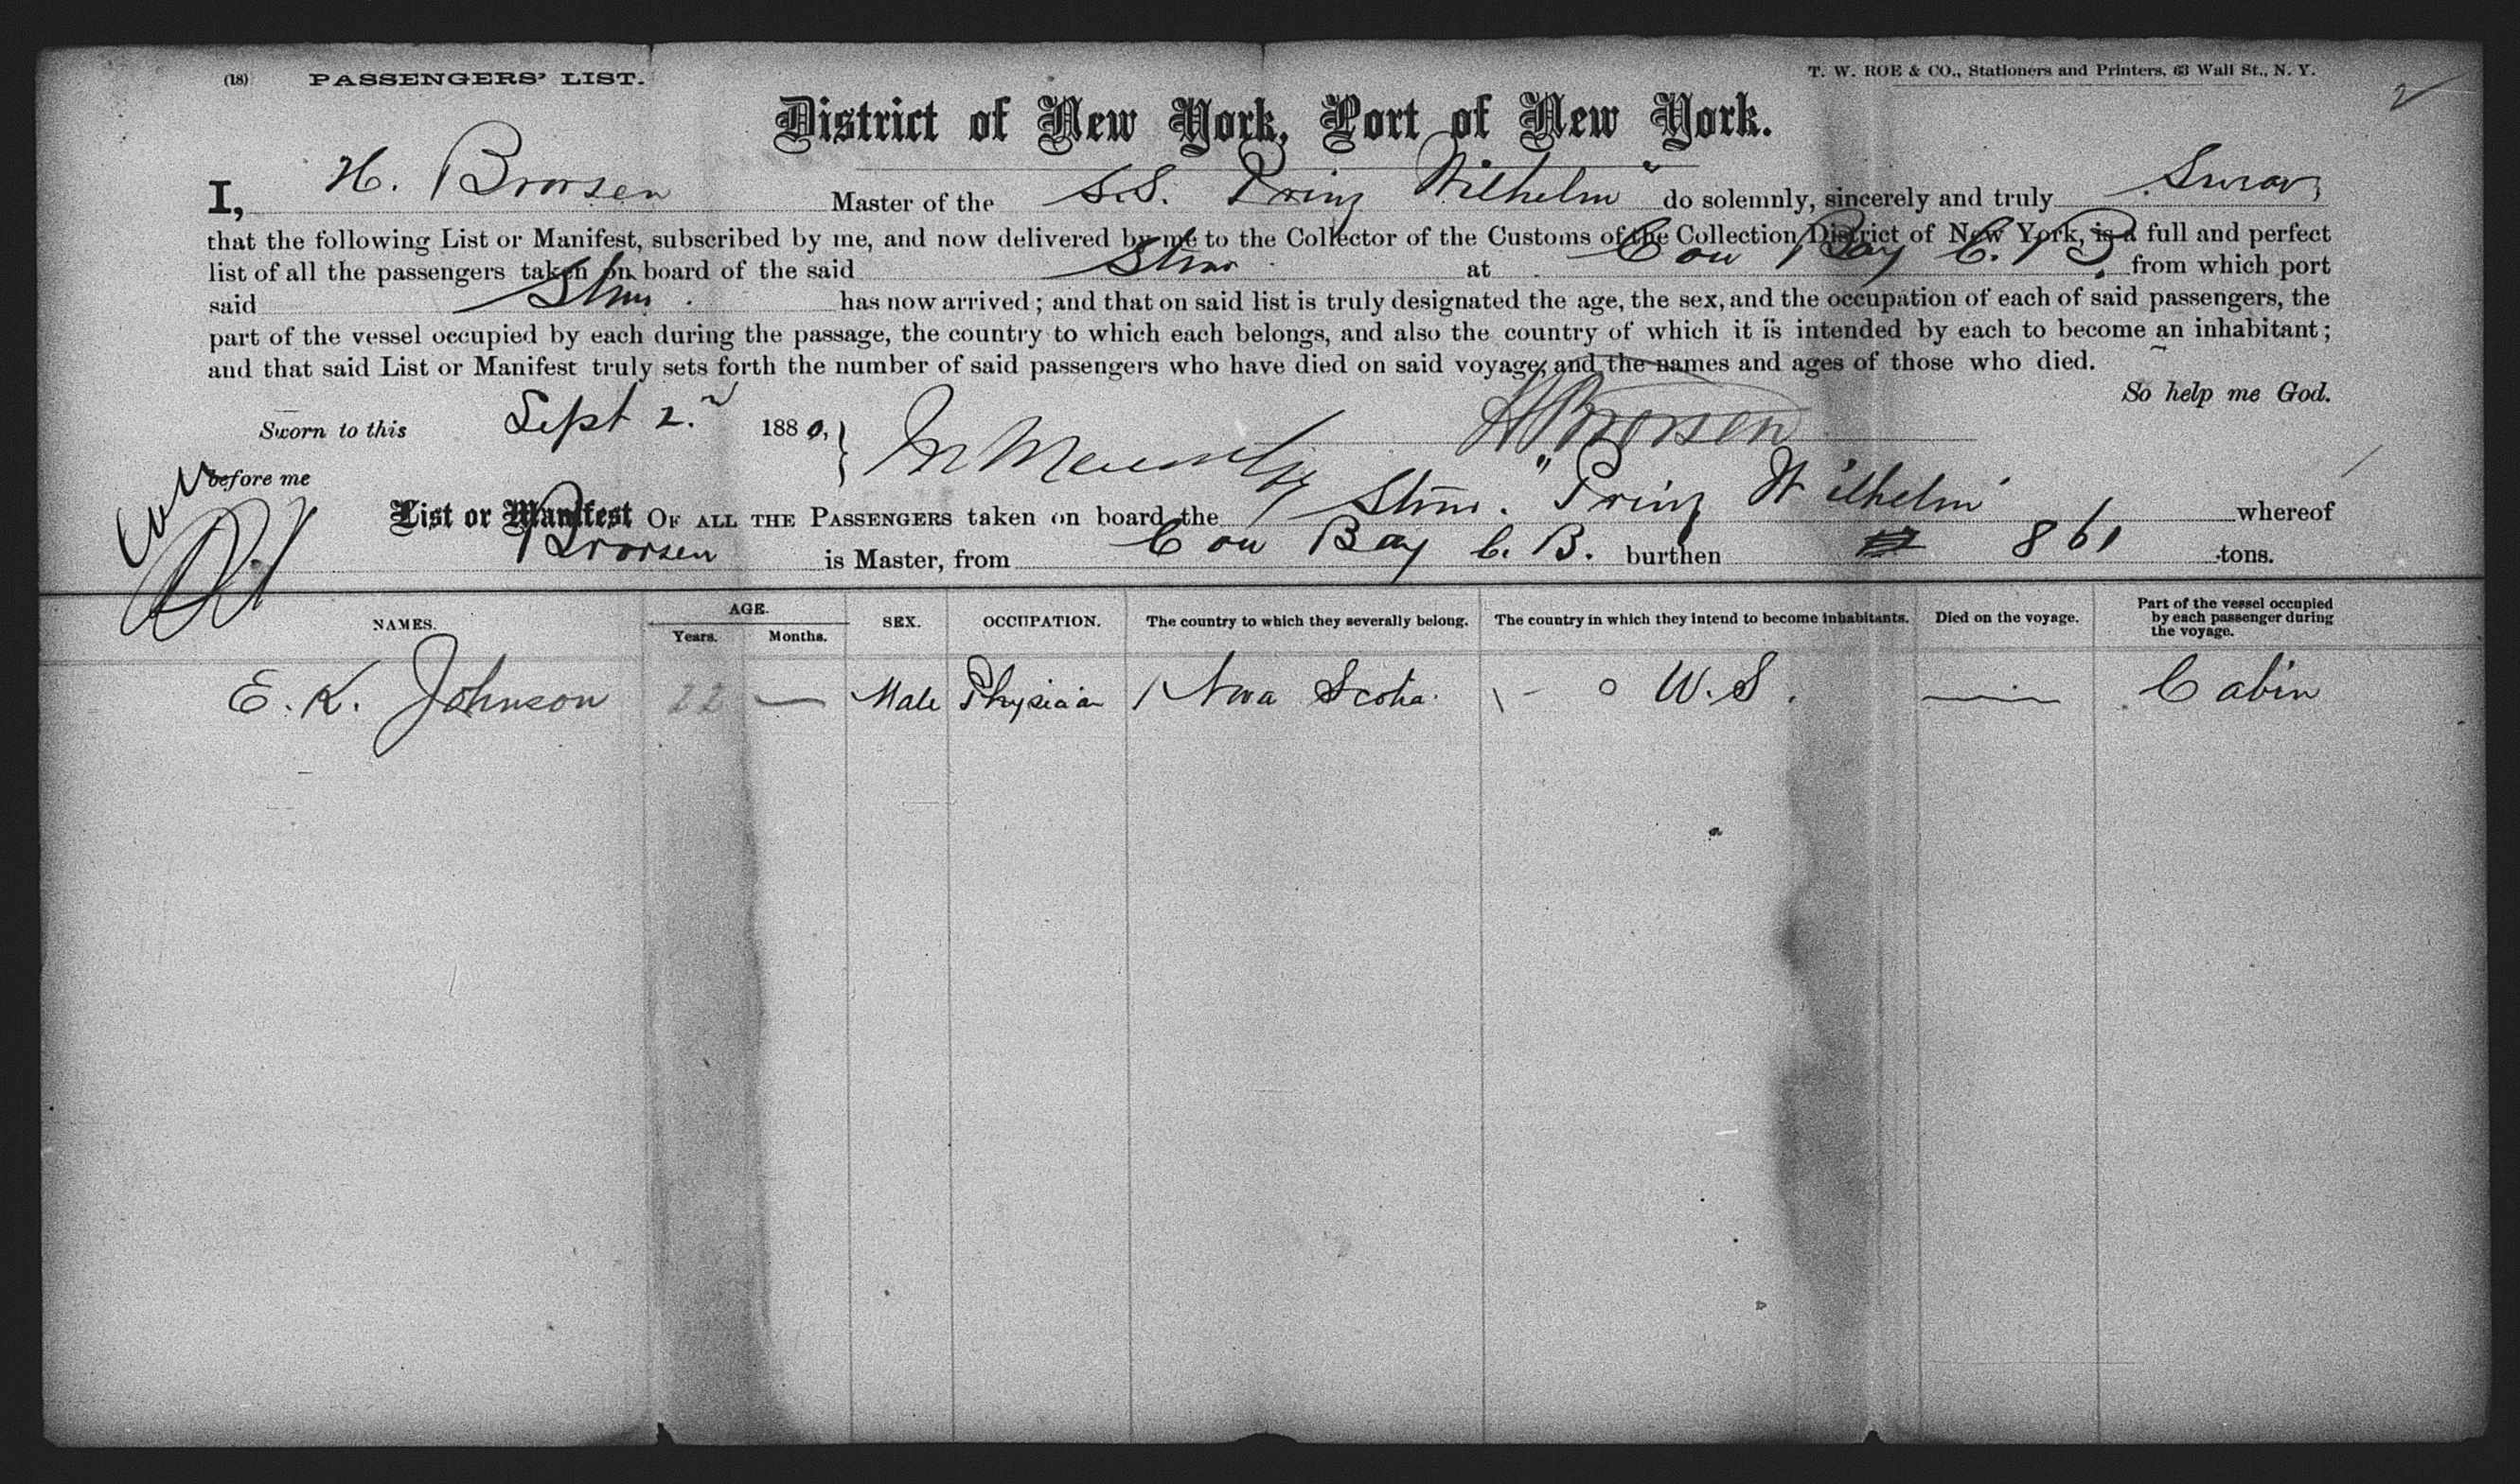 (18) PASSENGERS' LIST. T. W. ROE & CO., Stationers and Printers, 63 Wall St., N. Y.
2
District of New York, Port of New York.
I, H. Brorsen Master of the S.S. Prinz Wilhelm" do solemnly, sincerely and truly Swear
that the following List or Manifest, subscribed by me, and now delivered by me to the Collector of the Customs of the Collection District of New York, is a full and perfect
list of all the passengers taken on board of the said Stmr at Cow Bay C. B. from which port
said Stmr. has now arrived; and that on said list is truly designated the age, the sex, and the occupation of each of said passengers, the
part of the vessel occupied by each during the passage, the country to which each belongs, and also the country of which it is intended by each to become an inhabitant;
and that said List or Manifest truly sets forth the number of said passengers who have died on said voyage, and the names and ages of those who died.
So help me God.
Sworn to this Sept 2. 1880, HBrorsen
before me
List or Manifest OF ALL THE PASSENGERS taken on board the Stmr. "Prinz Wilhelm" whereof
Brorsen is Master, from Cow Bay C. B. burthen 861 tons.
NAMES. AGE. Years. Months. SEX. OCCUPATION. The country to which they severally belong. The country in which they intend to become inhabitants. Died on the voyage. Part of the vessel occupied by each passenger during the voyage.
E. K. Johnson 22 — Male Physician Nova Scotia. U.S. — Cabin